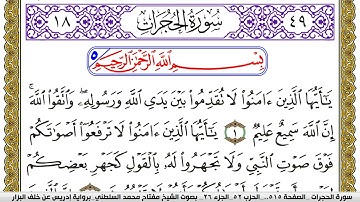 ٤٩ سُورَةُ الْحُجُرَاتِ ١٨
بِسْمِ اللَّهِ الرَّحْمَٰنِ الرَّحِيمِ
يَـٰٓأَيُّهَا الَّذِينَ ءَامَنُوا لَا تُقَدِّمُوا بَيْنَ يَدَيِ اللَّهِ وَرَسُولِهِۦ وَاتَّقُوا اللَّهَ ۚ
إِنَّ اللَّهَ سَمِيعٌ عَلِيمٌ ١ يَـٰٓأَيُّهَا الَّذِينَ ءَامَنُوا لَا تَرْفَعُوٓا أَصْوَٰتَكُمْ
فَوْقَ صَوْتِ النَّبِيِّ وَلَا تَجْهَرُوا لَهُۥ بِالْقَوْلِ كَجَهْرِ بَعْضِكُمْ
سورة الحجرات - الصفحة ٥١٥ - الحزب ٥٢ - الجزء ٢٦ - بصوت الشيخ مفتاح محمد السلطني برواية ادريس عن خلف البزار